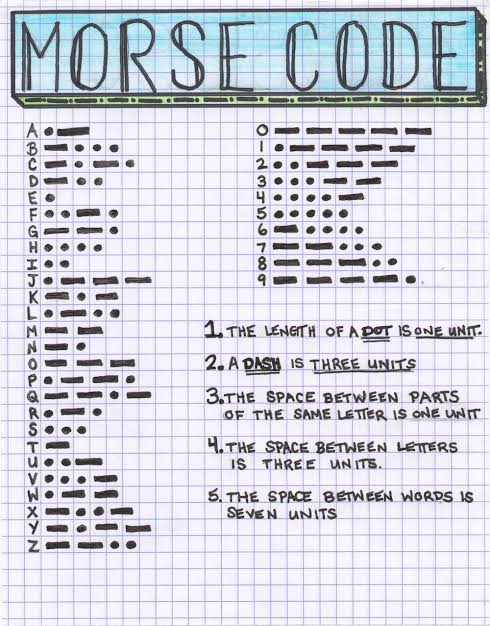 MORSE CODE
A • —
B — • • •
C — • — •
D — • •
E •
F • • — •
G — — •
H • • • •
I • •
J • — — —
K — • —
L • — • •
M — —
N — •
O — — —
P • — — •
Q — — • —
R • — •
S • • •
T —
U • • —
V • • • —
W • — —
X — • • —
Y — • — —
Z — — • •
0 — — — — —
1 • — — — —
2 • • — — —
3 • • • — —
4 • • • • —
5 • • • • •
6 — • • • •
7 — — • • •
8 — — — • •
9 — — — — •
1. THE LENGTH OF A DOT IS ONE UNIT.
2. A DASH IS THREE UNITS
3. THE SPACE BETWEEN PARTS
OF THE SAME LETTER IS ONE UNIT
4. THE SPACE BETWEEN LETTERS
IS THREE UNITS.
5. THE SPACE BETWEEN WORDS IS
SEVEN UNITS